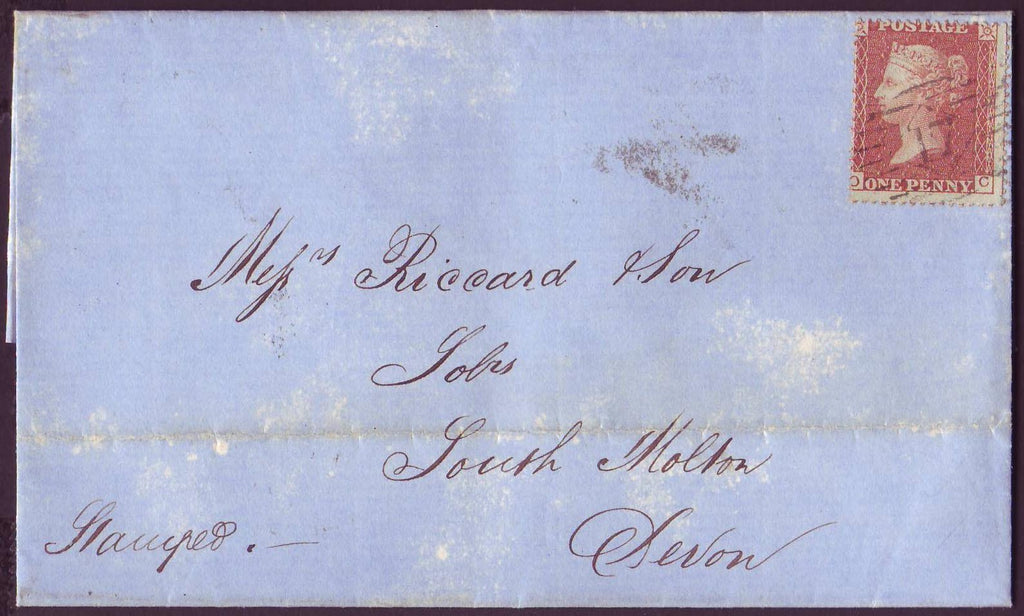 POSTAGE
ONE PENNY
C
Messrs Riccard & Son
Solrs
South Molton
Devon
Stamped. —